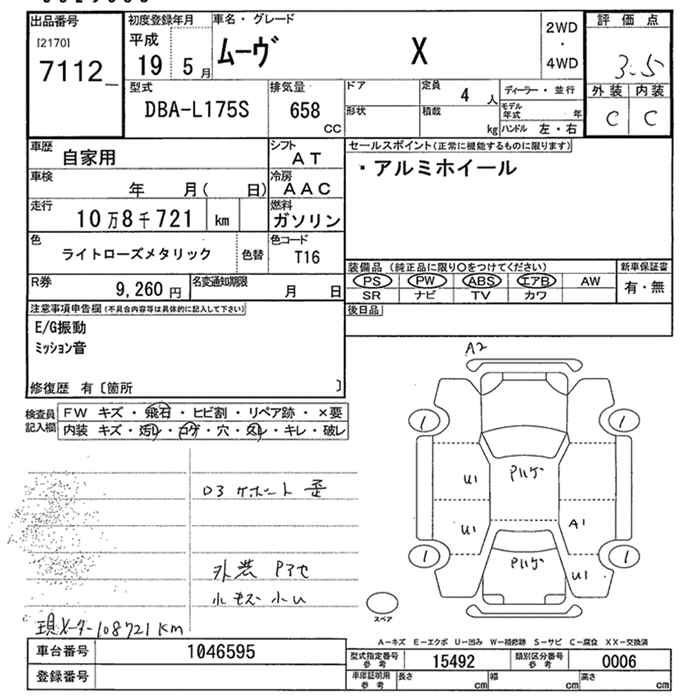 出品番号
[2170]
7112
初度登録年月
平成
19 5月
車名・グレード
ムーヴ X
2WD
・
4WD
評価点
3.5
外装 内装
C C
型式
DBA-L175S
排気量
658
CC
ドア
形状
定員
4 人
積載
kg
ディーラー・並行
モデル年式 年
ハンドル 左・右
車歴
自家用
シフト
AT
車検
年 月( 日)
冷房
AAC
走行
10万8千721 km
燃料
ガソリン
色
ライトローズメタリック
色替
色コード
T16
R券
9,260 円
名変通知期限
月 日
セールスポイント(正常に機能するものに限ります)
・アルミホイール
装備品 (純正品に限り○をつけてください)
PS PW ABS エアB AW
SR ナビ TV カワ
新車保証書
有・無
後日品
注意事項申告欄(不具合内容等は具体的に記入して下さい)
E/G振動
ミッション音
修復歴 有〔箇所 〕
検査員記入欄
FW キズ・飛石・ヒビ割・リペア跡・×要
内装 キズ・汚レ・コゲ・穴・スレ・キレ・破レ
D3 ケボート 歪
外装 Pヌセ
小キズ 小U
現メーター108721KM
A2
1 1
U1
Pハゲ
U1
A1
1 1
Pハゲ
U1
スペア
A−キズ E−エクボ U−凹み W−補修跡 S−サビ C−腐食 XX−交換済
車台番号
1046595
登録番号
型式指定番号
参考
15492
類別区分番号
参考
0006
車庫証明用
参考
長さ cm
幅 cm
高さ cm